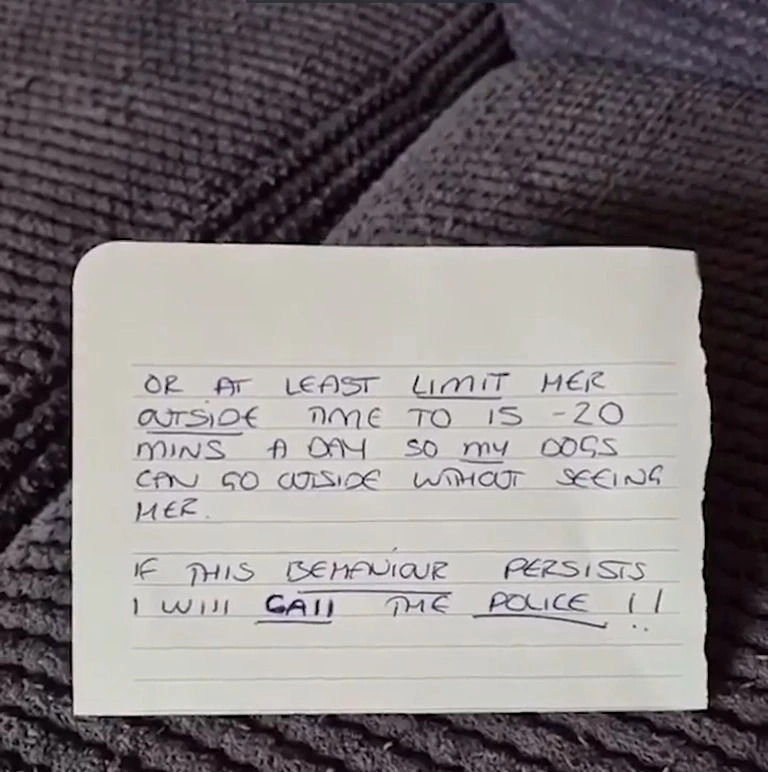 OR AT LEAST LIMIT HER
OUTSIDE TIME TO 15 -20
MINS A DAY SO my DOGS
CAN GO OUTSIDE WITHOUT SEEING
HER.
IF THIS BEHAVIOUR PERSISTS
I WIll CAll THE POLICE !!